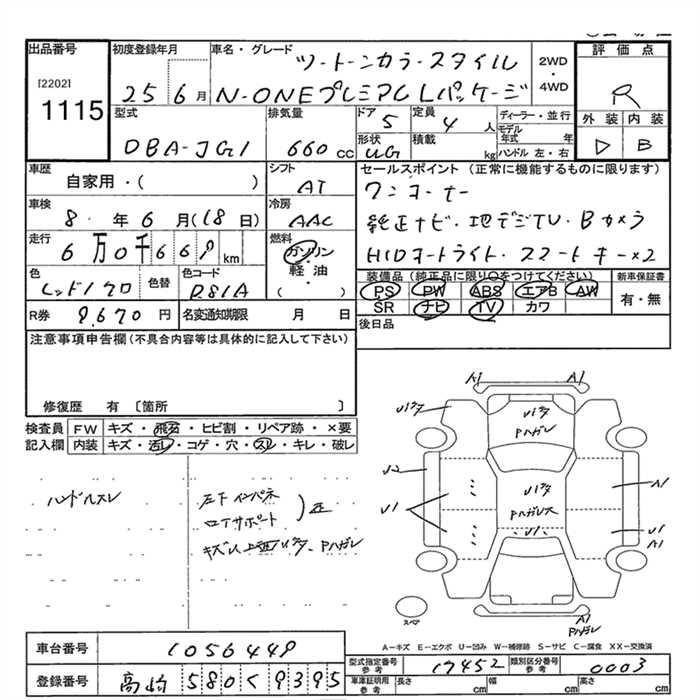 出品番号
[2202]
1115
初度登録年月
25 6月
車名・グレード
ツートーンカラースタイル
N-ONEプレミアム Lパッケージ
2WD
・
4WD
評価点
R
外装 内装
D B
型式
DBA-JG1
排気量
660 cc
ドア
5
定員
4 人
ディーラー・並行
モデル年式 年
形状
UG
積載
kg
ハンドル 左・右
車歴
自家用・( )
シフト
AT
車検
8. 年 6 月 (18 日)
冷房
AAC
走行
6万0千669 km
燃料
ガソリン
軽油
・
( )
色
レッド/クロ
色替
色コード
R81A
R券 9,670 円
名変通知期限 月 日
セールスポイント (正常に機能するものに限ります)
ワンオーナー
純正ナビ・地デジTV・Bカメラ
HIDオートライト・スマートキー×2
装備品 (純正品に限り○をつけてください)
PS PW ABS エアB AW
SR ナビ TV カワ
新車保証書
有・無
後日品
注意事項申告欄 (不具合内容等は具体的に記入して下さい)
修復歴 有 〔箇所 〕
検査員記入欄
FW キズ・飛石・ヒビ割・リペア跡・×要
内装 キズ・汚レ・コゲ・穴・スレ・キレ・破レ
ハンドルスレ
左Fインパネ
ロアサポート
) 正
キズ
A1 A1
U1キズ
U1キズ
Pハガレ
U2
U1
U1キズ
Pハガレ
A1
U1
U1
A1
A1
Pハガレ
スペア
A−キズ E−エクボ U−凹み W−補修跡 S−サビ C−腐食 XX−交換済
車台番号
1056449
登録番号
高崎 580 く 9395
型式指定番号
参考
17452
類別区分番号
参考
0003
車庫証明用
参考
長さ cm 幅 cm 高さ cm